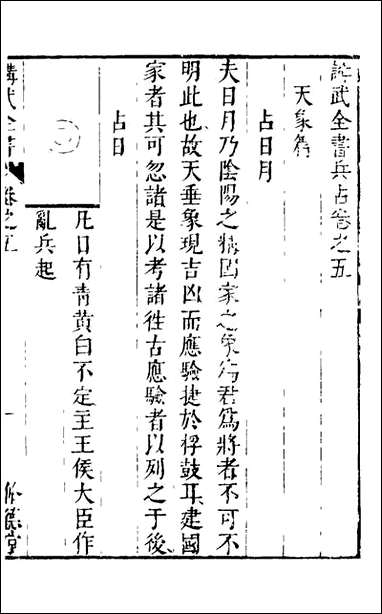 講武全書兵占卷之五
天象篇
占日月
夫日月乃陰陽之精國家之象為君為將者不可不
明此也故天垂象現吉凶而應驗捷於桴鼓耳建國
家者其可忽諸是以考諸徃古應驗者以列之于後
占日
凡日有靑黃白不定主王侯大臣作
亂兵起
講武全書 卷之五 一